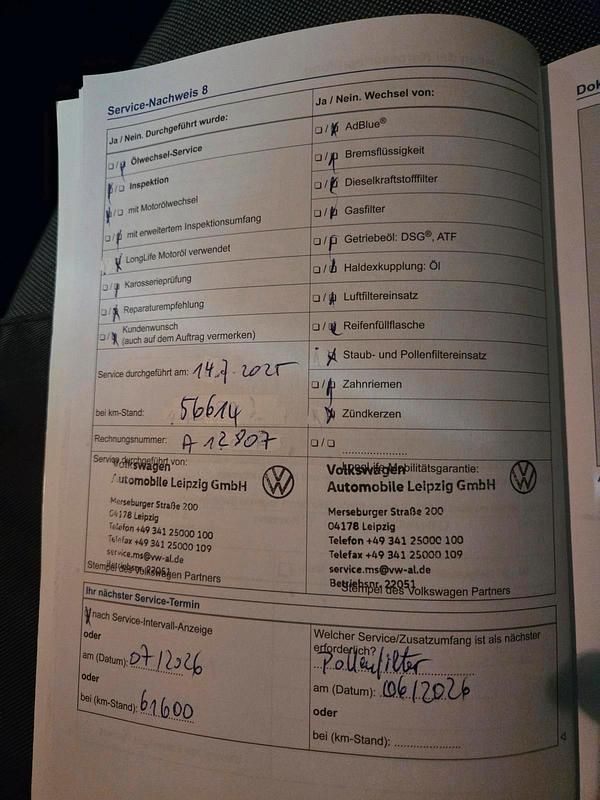 Service-Nachweis 8
Ja / Nein. Durchgeführt wurde:
Ölwechsel-Service
Inspektion
mit Motorölwechsel
mit erweitertem Inspektionsumfang
LongLife Motoröl verwendet
Karosserieprüfung
Reparaturempfehlung
Kundenwunsch
(auch auf dem Auftrag vermerken)
Service durchgeführt am: 14.7.2025
bei km-Stand: 56614
Rechnungsnummer: A 12807
Service durchgeführt von:
Volkswagen
Automobile Leipzig GmbH
Merseburger Straße 200
04178 Leipzig
Telefon +49 341 25000 100
Telefax +49 341 25000 109
service.ms@vw-al.de
Betriebsnr. 22051
Stempel des Volkswagen Partners
Ja / Nein. Wechsel von:
AdBlue®
Bremsflüssigkeit
Dieselkraftstofffilter
Gasfilter
Getriebeöl: DSG®, ATF
Haldexkupplung: Öl
Luftfiltereinsatz
Reifenfüllflasche
Staub- und Pollenfiltereinsatz
Zahnriemen
Zündkerzen
Volkswagen
LongLife Mobilitätsgarantie:
Automobile Leipzig GmbH
Merseburger Straße 200
04178 Leipzig
Telefon +49 341 25000 100
Telefax +49 341 25000 109
service.ms@vw-al.de
Betriebsnr. 22051
Stempel des Volkswagen Partners
Ihr nächster Service-Termin
nach Service-Intervall-Anzeige
oder
am (Datum): 07/2026
oder
bei (km-Stand): 61600
Welcher Service/Zusatzumfang ist als nächster
erforderlich?
Pollenfilter
am (Datum): 06/2026
oder
bei (km-Stand):
4